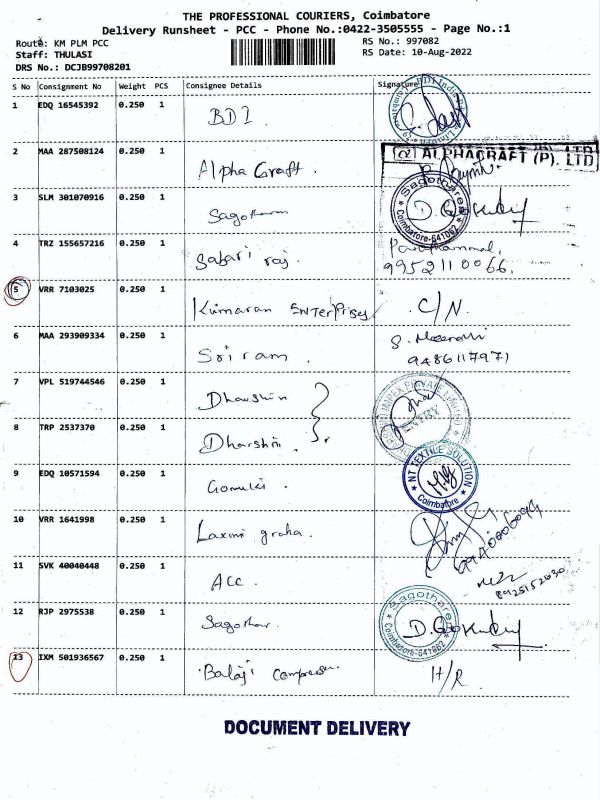 THE PROFESSIONAL COURIERS, Coimbatore
Delivery Runsheet - PCC - Phone No.:0422-3505555 - Page No.:1
Route: KM PLM PCC RS No.: 997082
Staff: THULASI RS Date: 10-Aug-2022
DRS No.: DCJB99708201
S No Consignment No Weight PCS Consignee Details Signature
1 EDQ 16545392 0.250 1 BDI
2 MAA 287508124 0.250 1 Alpha Craft.
@ ALPHACRAFT (P). LTD
3 SLM 301070916 0.250 1 Sagotharan
Sagothare Coimbatore-641062
4 TRZ 155657216 0.250 1 Sabari raj.
9952110066.
5 VRR 7103025 0.250 1 Kumaran Enterprises C/N.
6 MAA 293909334 0.250 1 Sri ram. 9486117971
7 VPL 519744546 0.250 1 Dharshin
8 TRP 2537370 0.250 1 Dharshin.
9 EDQ 10571594 0.250 1 Gomuki.
NT TEXTILE SOLUTION Coimbatore
10 VRR 1641998 0.250 1 Laxmi graha.
11 SVK 40040448 0.250 1 ACC.
8925152030
12 RJP 2975538 0.250 1 Sagothar.
Sagothare Coimbatore-641062
13 IXM 501936567 0.250 1 Balaji compressor H/R.
DOCUMENT DELIVERY